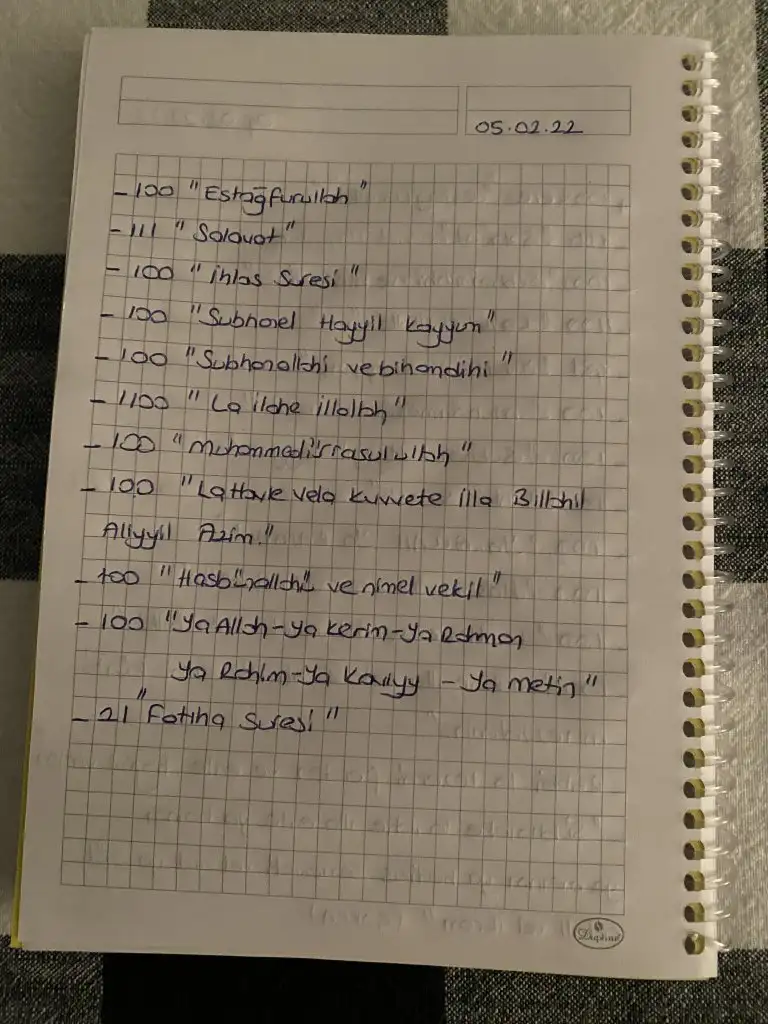 05.02.22
- 100 "Estağfurullah"
- 111 "Salavat"
- 100 "ihlas Suresi"
- 100 "Subhanel Hayyil Kayyum"
- 100 "Subhanallahi vebihamdihi"
- 1100 "La ilahe illallah"
- 100 "Muhammedürrasulullah"
- 100 "La Havle vela kuvvete illa Billahil
Aliyyil Azim."
- 100 "Hasbünallahü ve nimel vekil"
- 100 "Ya Allah-ya kerim-ya Rahman
ya Rahim-ya kaviyy - ya metin"
- 21 "Fatiha suresi"
Daphne